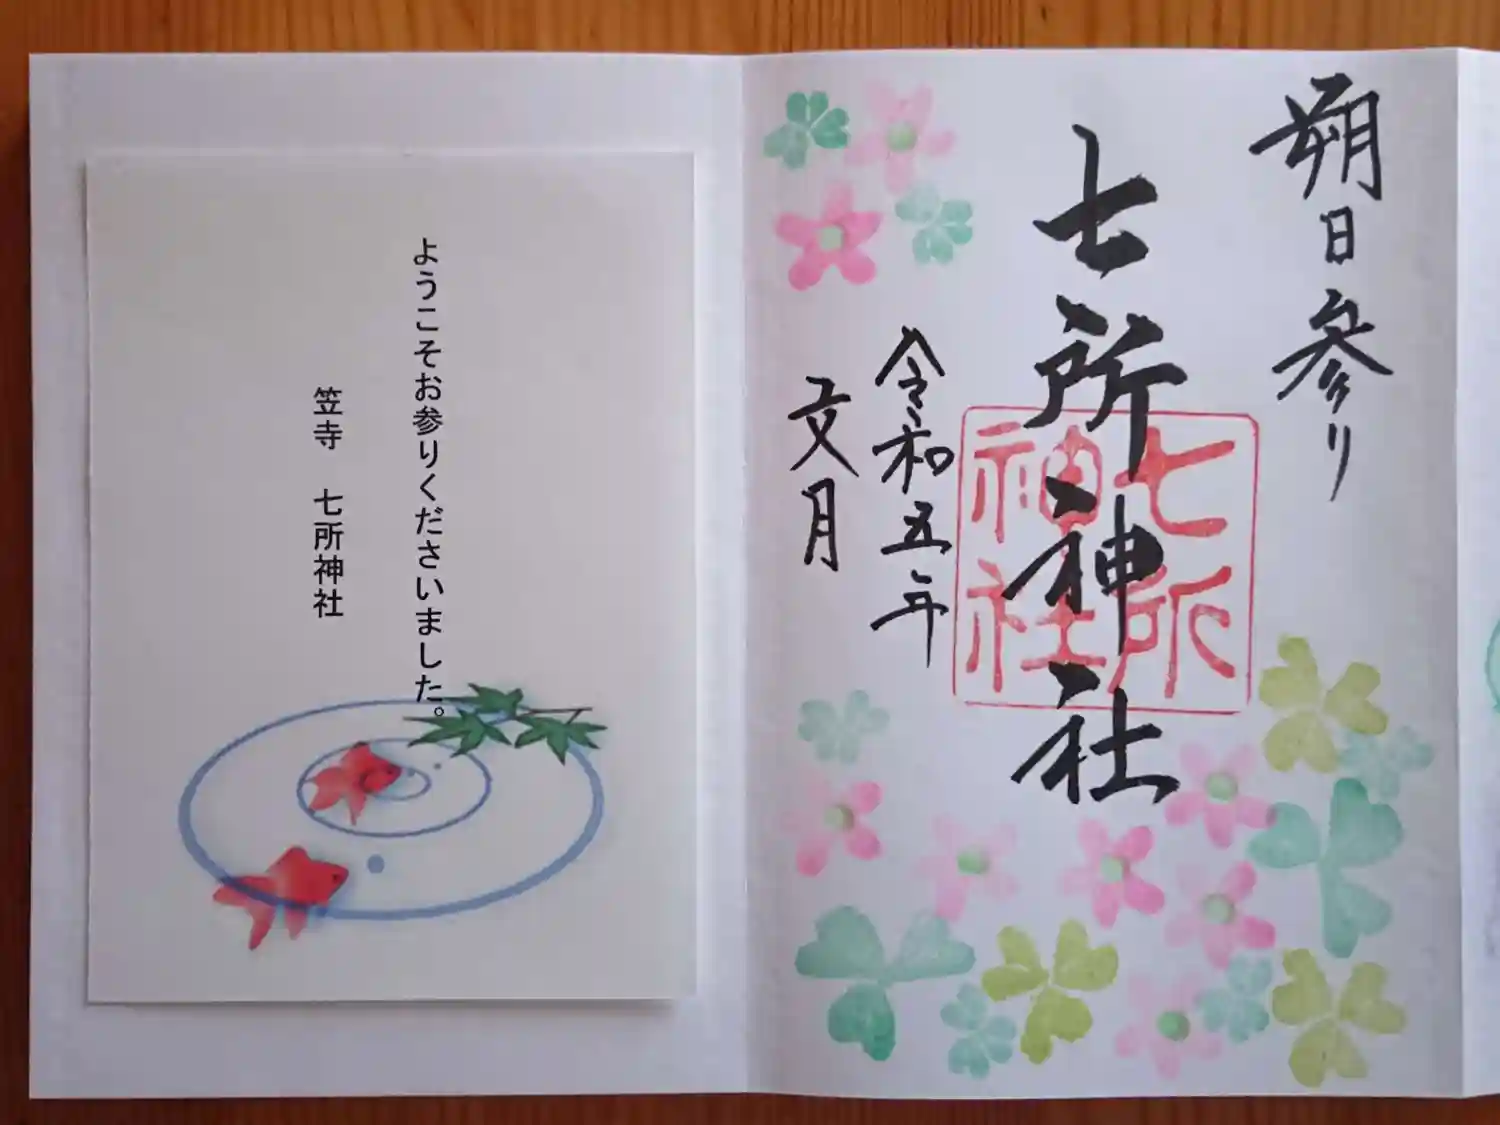 朔日参り
七所神社
七所神社
令和五年
文月
ようこそお参りくださいました。
笠寺 七所神社